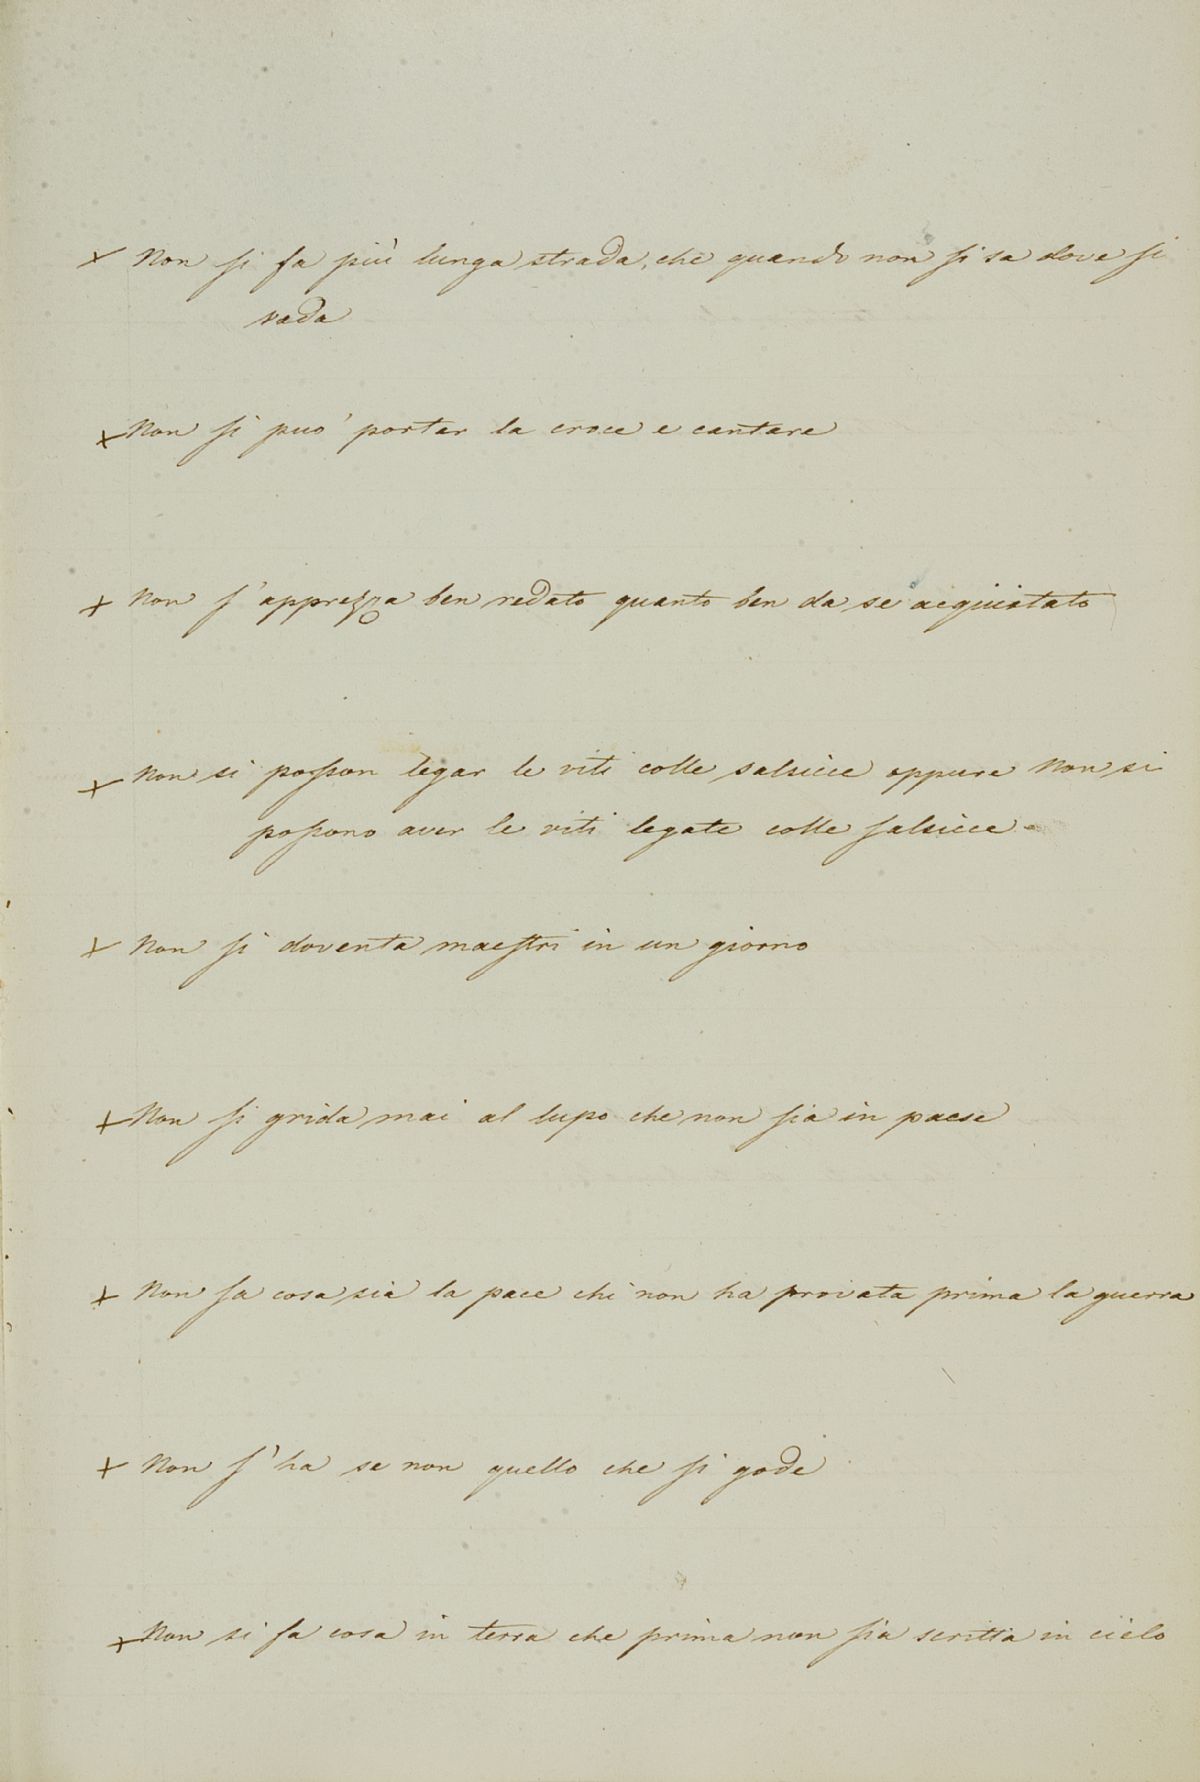 + Non si fa più lunga strada, che quando non si sa dove si
vada
+ Non si può portar la croce e cantare
+ Non s'apprezza ben redato quanto ben da sè acquistato
+ Non si posson legar le viti colle salsicce oppure Non si
possono aver le viti legate colle salsicce
+ Non si doventa maestri in un giorno
+ Non si grida mai al lupo che non sia in paese
+ Non sa cosa sia la pace chi non ha provata prima la guerra
+ Non s'ha se non quello che si gode
+ Non si fa cosa in terra che prima non sia scritta in cielo